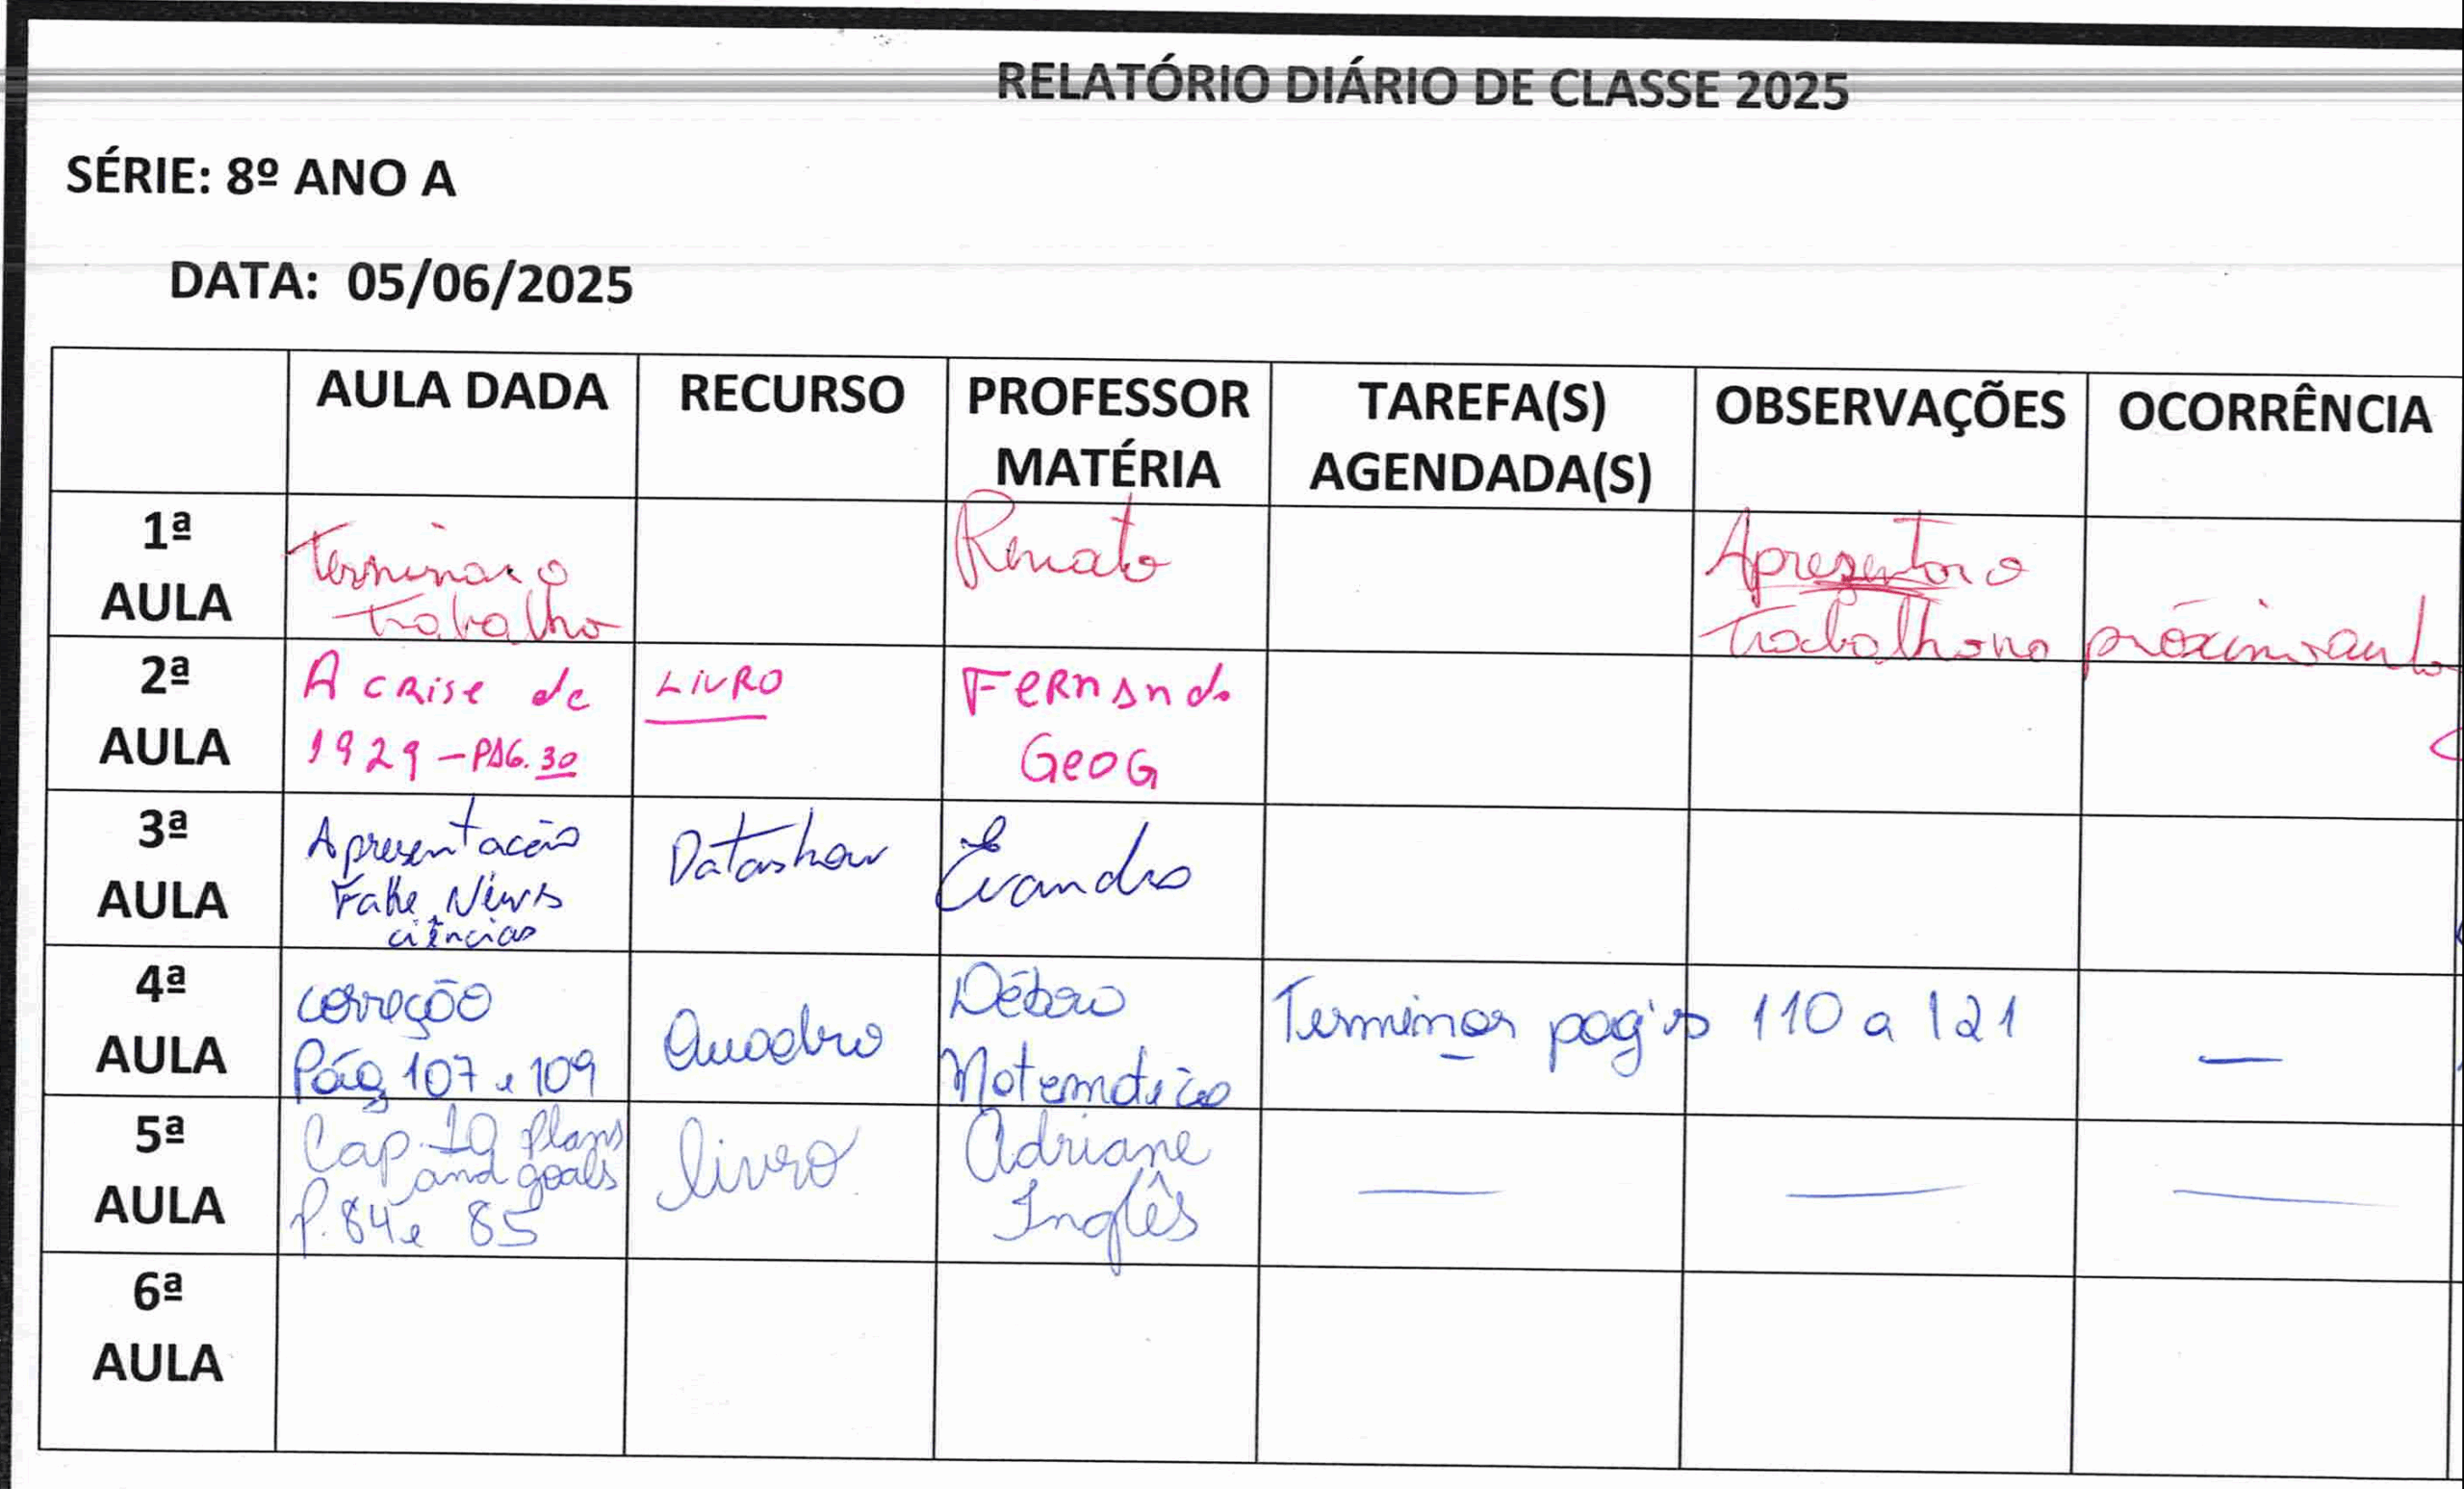 RELATÓRIO DIÁRIO DE CLASSE 2025
SÉRIE: 8º ANO A
DATA: 05/06/2025
AULA DADA RECURSO PROFESSOR MATÉRIA TAREFA(S) AGENDADA(S) OBSERVAÇÕES OCORRÊNCIA
1ª AULA
Terminar o
trabalho
Renato
Apresentar o
trabalho na próxima aula
2ª AULA
A crise de
1929 – PÁG. 30
LIVRO
Fernando
GeoG
3ª AULA
Apresentação
Fake News
ciências
Datashow
Evandro
4ª AULA
correção
Pág 107 e 109
Quadro
Débora
Matemática
Terminar pag's 110 a 121
—
5ª AULA
Cap. 10 Plans
and goals
P. 84 e 85
livro
Adriane
Inglês
— — —
6ª AULA